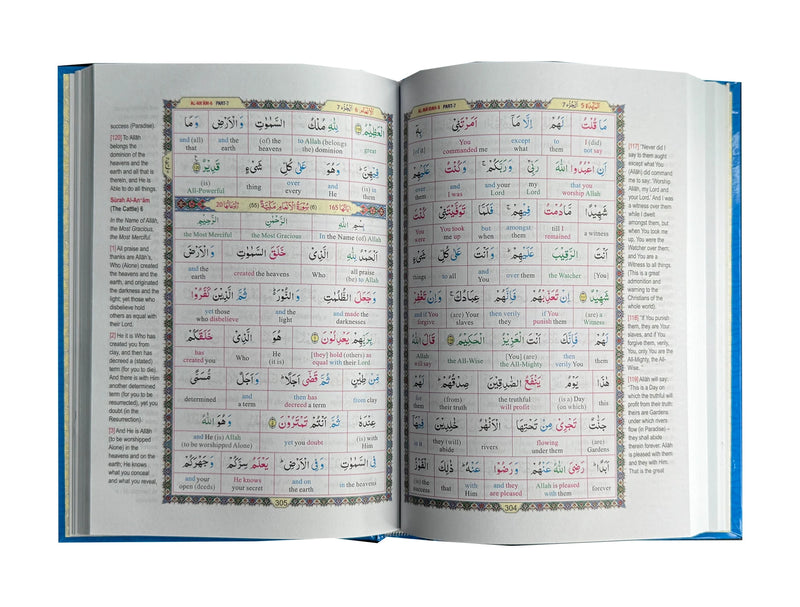 AL-MA'IDAH-5 PART-7
مَا قُلْتُ لَهُمْ إِلَّا مَآ أَمَرْتَنِى بِهِۦٓ
of it You what except to them I did
commanded me not say
أَنِ اعْبُدُوا اللَّهَ رَبِّى وَرَبَّكُمْ ۚ وَكُنْتُ عَلَيْهِمْ
over and I and your my Allah that you
them was Lord Lord worship
شَهِيدًا مَّا دُمْتُ فِيهِمْ ۖ فَلَمَّا تَوَفَّيْتَنِى كُنْتَ
You You took but amongst till I a witness
were me up when them remained
أَنْتَ الرَّقِيبَ عَلَيْهِمْ ۚ وَأَنْتَ عَلَىٰ كُلِّ شَىْءٍ
things to all and You over them the Watcher [You]
شَهِيدٌ إِنْ تُعَذِّبْهُمْ فَإِنَّهُمْ عِبَادُكَ ۖ وَإِنْ تَغْفِرْ
and if You (are) Your then verily if You (are) a
forgive slaves they punish them Witness
لَهُمْ فَإِنَّكَ أَنْتَ الْعَزِيزُ الْحَكِيمُ قَالَ اللَّهُ
Allah the All-Wise [You] (are) then them
will say the All-Mighty verily You
هَٰذَا يَوْمُ يَنْفَعُ الصَّٰدِقِينَ صِدْقُهُمْ ۚ لَهُمْ
for (from) the truthful (is) a Day this
them their truth will profit (on which)
جَنَّٰتٌ تَجْرِى مِنْ تَحْتِهَا الْأَنْهَٰرُ خَٰلِدِينَ فِيهَآ
in it they (will) rivers flowing (are)
abide under them Gardens
أَبَدًا ۚ رَضِىَ اللَّهُ عَنْهُمْ وَرَضُوا عَنْهُ ۚ ذَٰلِكَ الْفَوْزُ
(is) the that with and they Allah is pleased forever
success Him are pleased with them
304
[117] "Never did I
say to them aught
except what You
(Allah) did
command me to
say: 'Worship
Allah, my Lord and
your Lord.' And I
was a witness
over them while I
dwelt
amongst them, but
when You took
me up, You were
the Watcher over
them; and You
are a Witness to
all things.
(This is a great
admonition and
warning to the
Christians of the
whole world).
[118] "If You punish
them, they are Your
slaves, and if You
forgive them, verily,
You, only You are the
All-Mighty, the All-
Wise."
[119] Allâh will say:
"This is a Day on
which the truthful will
profit from their truth:
theirs are Gardens
under which rivers
flow (in Paradise) –
they shall abide
therein forever. Allâh
is pleased with them
and they with Him.
That is the great
AL-AN'ÂM-6 PART-7
الأنعام 6 الجزء 7
الْعَظِيمُ لِلَّهِ مُلْكُ السَّمَٰوَٰتِ وَالْأَرْضِ وَمَا
and (all) and the (of) the to Allah (belongs great
that earth heavens the) dominion
فِيهِنَّ ۚ وَهُوَ عَلَىٰ كُلِّ شَىْءٍ قَدِيرٌ
(is) thing over and (is) in
All-Powerful every He them
بِسْمِ اللَّهِ الرَّحْمَٰنِ الرَّحِيمِ
the Most Merciful the Most Gracious In the Name (of) Allah
الْحَمْدُ لِلَّهِ الَّذِى خَلَقَ السَّمَٰوَٰتِ وَالْأَرْضَ
and the created the heavens Who all praise
earth (be) to Allah
وَجَعَلَ الظُّلُمَٰتِ وَالنُّورَ ۖ ثُمَّ الَّذِينَ كَفَرُوا
yet those and the and made the
who disbelieve light darknesses
بِرَبِّهِمْ يَعْدِلُونَ هُوَ الَّذِى خَلَقَكُمْ
has Who He [they] hold (others) as
created you (it is) equal with their Lord
مِنْ طِينٍ ثُمَّ قَضَىٰٓ أَجَلًا ۖ وَأَجَلٌ مُّسَمًّى
determined and then has from clay
a term decreed a term
عِنْدَهُۥ ۖ ثُمَّ أَنْتُمْ تَمْتَرُونَ وَهُوَ اللَّهُ
and He (is) Allah yet you doubt (is) with
(to be worshipped Alone) Him
فِى السَّمَٰوَٰتِ وَفِى الْأَرْضِ ۖ يَعْلَمُ سِرَّكُمْ وَجَهْرَكُمْ
and your He knows and on in the heavens
open (deeds) your secret the earth
305
success (Paradise).
[120] To Allâh
belongs the
dominion of the
heavens and the
earth and all that is
therein, and He is
Able to do all things.
Sûrah Al-An'âm
(The Cattle) 6
In the Name of Allâh,
the Most Gracious,
the Most Merciful.
[1] All praise and
thanks are Allâh's,
Who (Alone) created
the heavens and the
earth, and originated
the darkness and the
light; yet those who
disbelieve hold
others as equal with
their Lord.
[2] He it is Who has
created you from
clay, and then has
decreed a (stated)
term (for you to die).
And there is with Him
another determined
term (for you to be
resurrected), yet you
doubt (in the
Resurrection).
[3] And He is Allâh
(to be worshipped
Alone) in the
heavens and on the
earth; He knows
what you conceal
and what you reveal,